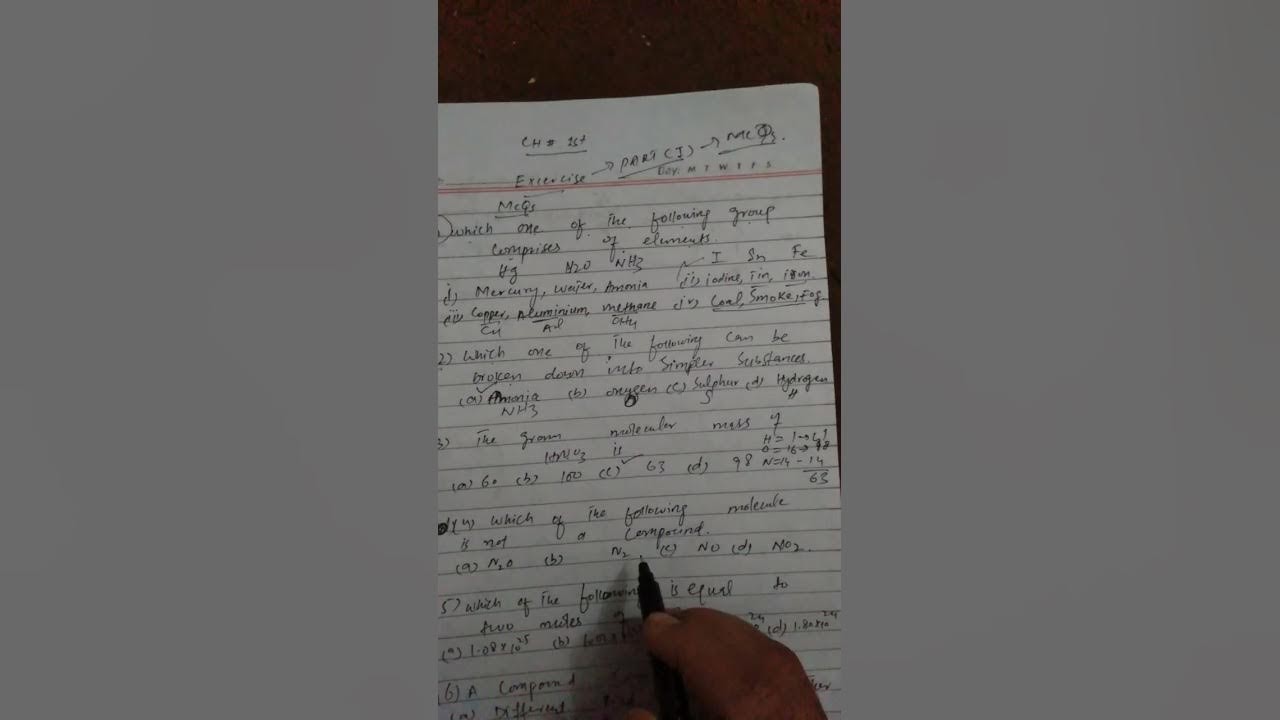 CH # 1st
Excercise → PART (I) → McQs.
Day. M T W T F S
McQs
which one of the following group
comprises of elements.
Hg H2O NH3 I Sn Fe
(i) Mercury, water, Amonia (ii) iodine, Tin, iron.
(iii) Copper, Aluminium, methane (iv) Coal, Smoke, Fog
Cu Al CH4
2) which one of the following can be
broken down into Simpler Substances.
(a) Amonia (b) oxygeen (c) Sulphur (d) Hydrogen
NH3 O S H
3) The gram molecular mass of
HNO3 is
H = 1 → 1
O = 16 → 48
(a) 60 (b) 100 (c) 63 (d) 98 N=14 - 14
63
(4) which of the following molecule
is not a Compound.
(a) N2O (b) N2 (c) NO (d) NO2.
5) which of the following is equal to
two moles
(a) 1.08 x 10^25 (b) 24 (d) 1.80x10^24
(6) A Compound
(a) Different